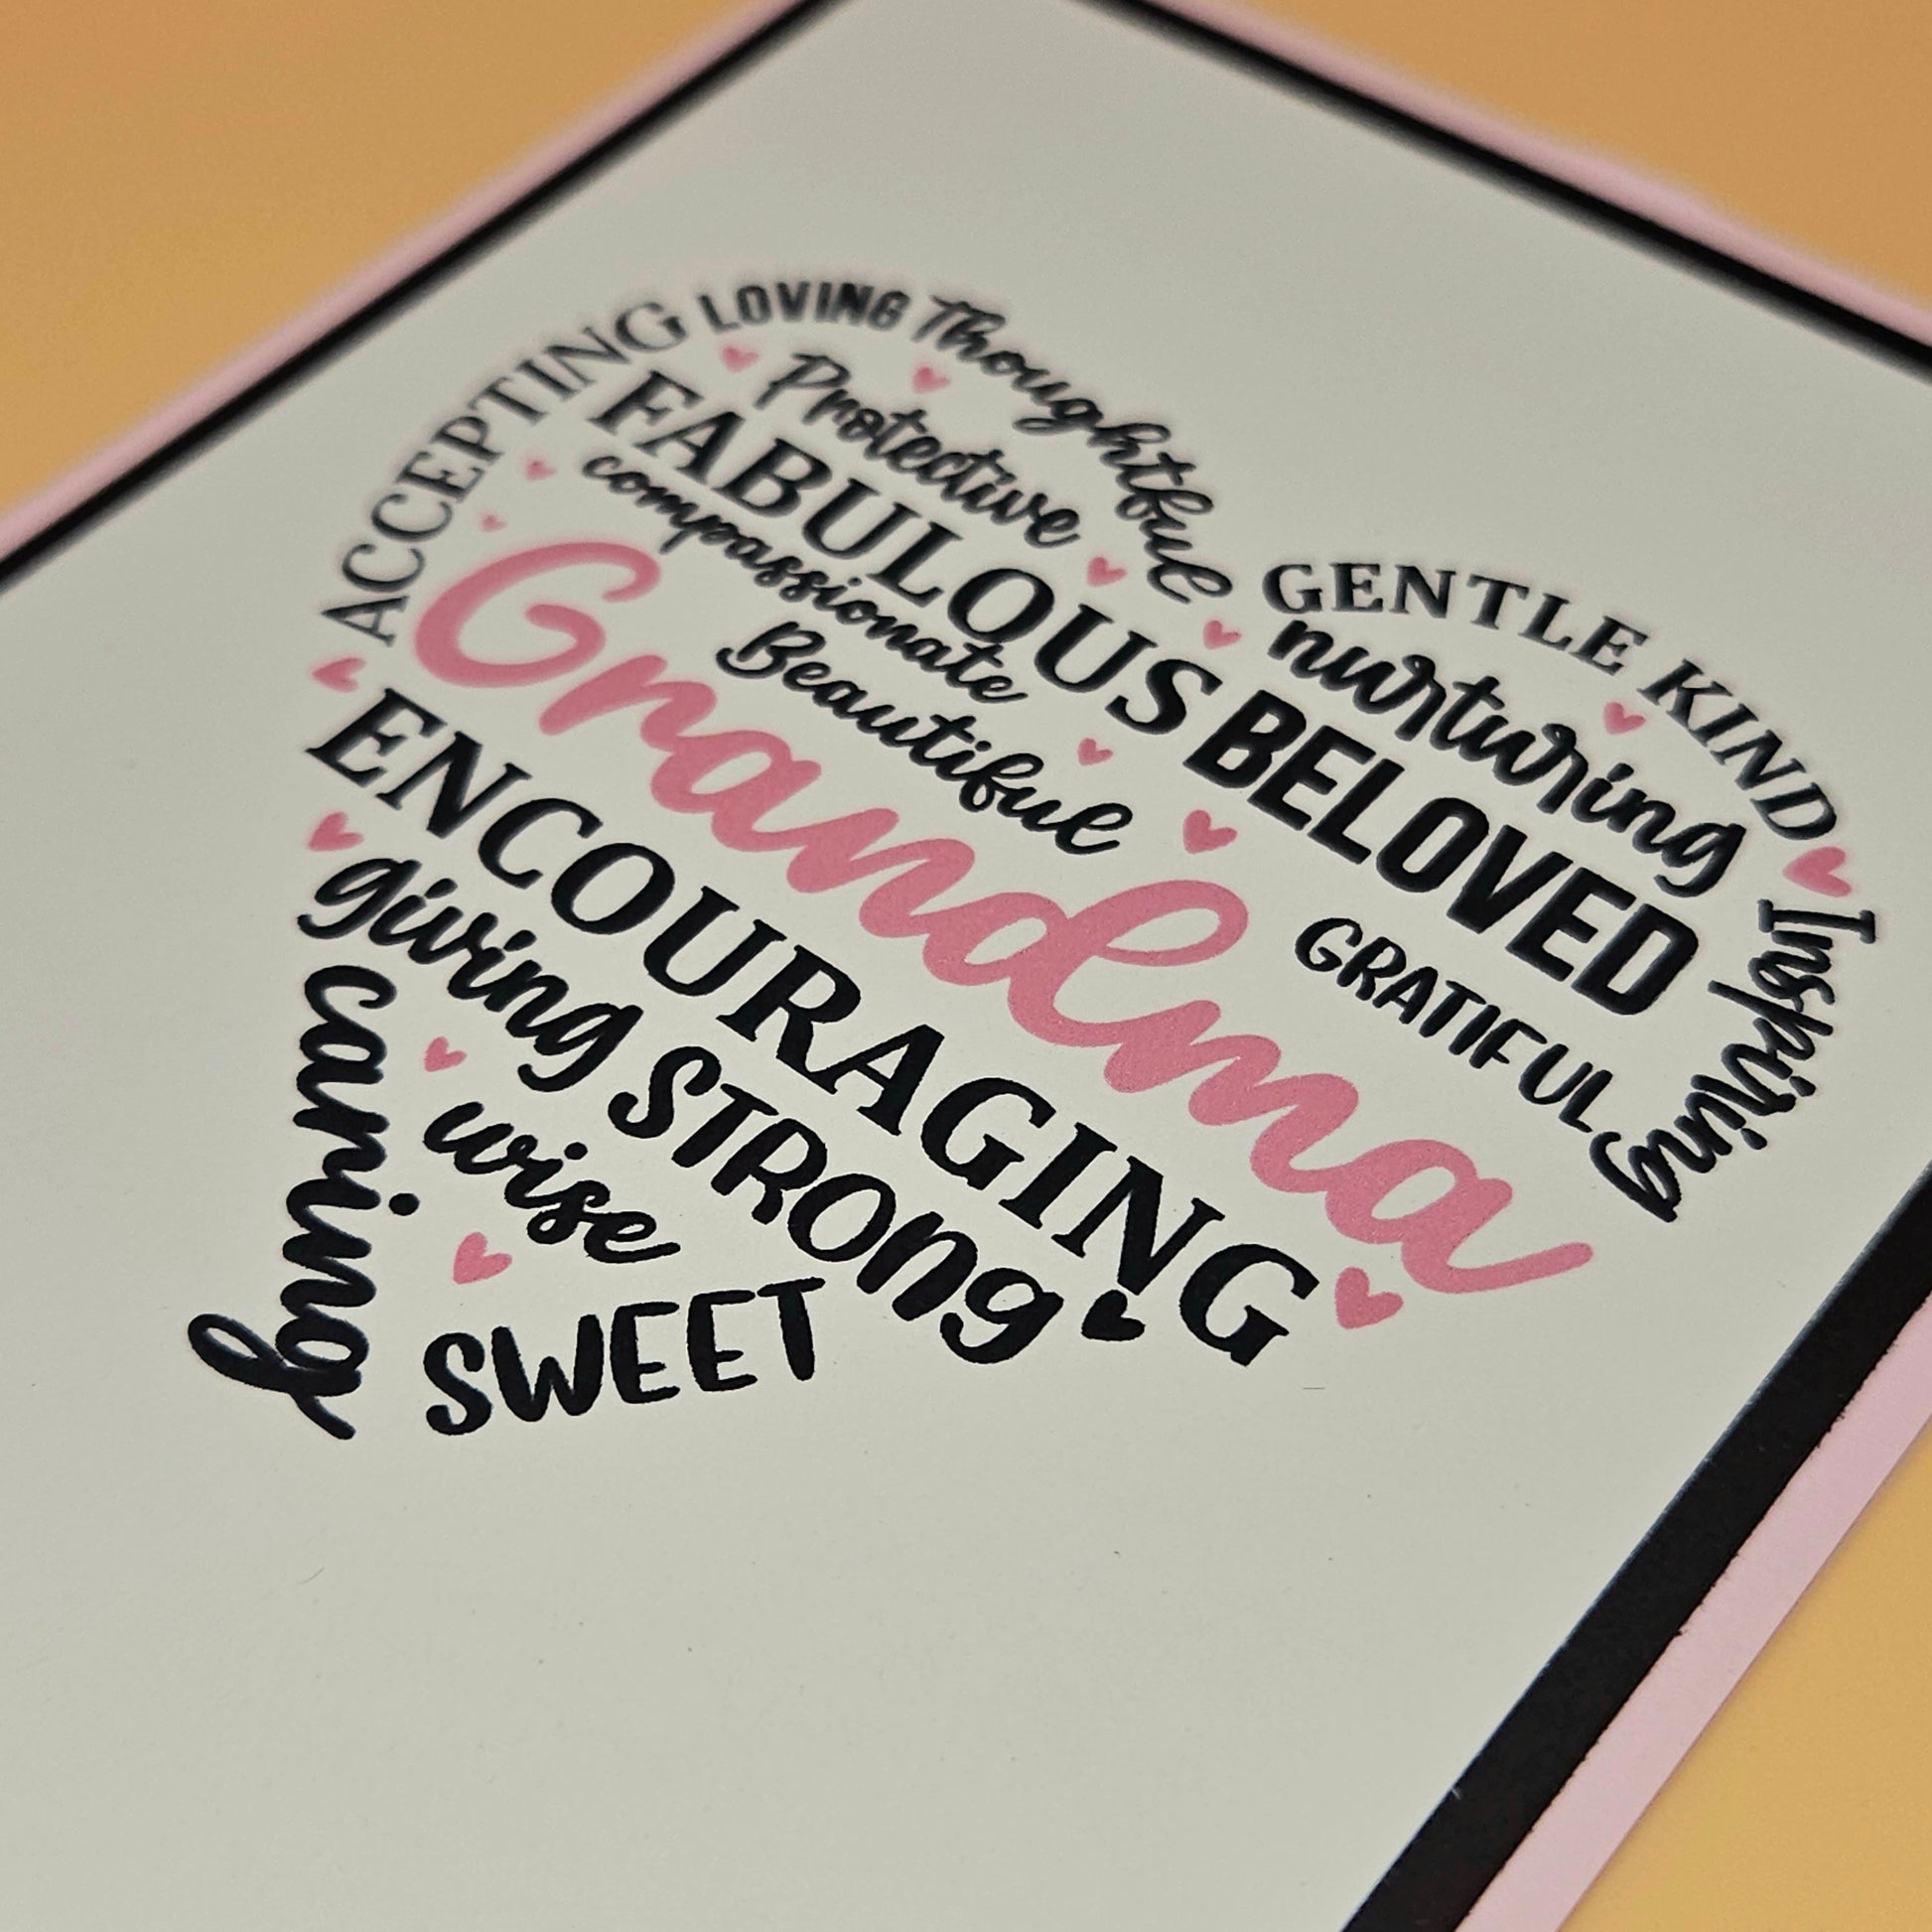 ACCEPTING LOVING Thoughtful
Protective
FABULOUS
compassionate
Beautiful
GENTLE KIND
nurturing
BELOVED
GRATIFUL
Inspiring
Grandma
ENCOURAGING
giving STRONG
caring
wise
SWEET